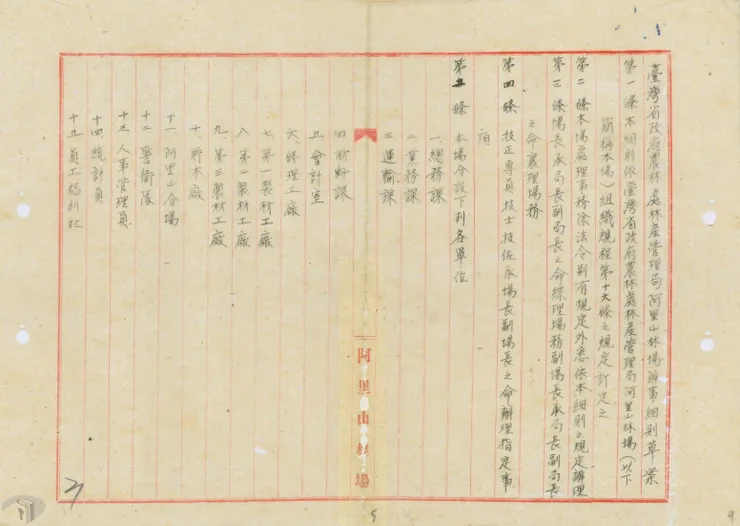 臺灣省政府農林處林產管理局阿里山林場辦事細則草案
第一條本細則依臺灣省政府農林處林產管理局阿里山林場(以下
簡稱本場)組織規程第十六條之規定訂定之
第二條本場處理事務除法令別有規定外悉依本細則之規定辦理
第三條場長承局長副局長之命綜理場務副場長承局長副局長
之命襄理場務
第四條技正專員技士技佐承場長副場長之命辦理指定事
項
第五條本場分設下列各單位
一、總務課
二業務課
三運輸課
四材料課
五會計室
六、修理工廠
七、第一製材工廠
八、第二製材工廠
九、第三製材工廠
十、貯木廠
十一阿里山分場
十二警衛隊
十三人事管理員
十四統計員
十五員工福利社
阿里山林場
5